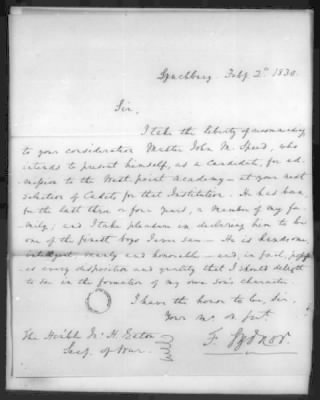 Lynchburg Feby 2d 1830.
Sir,
I take the liberty of recommending
to your consideration Master John M. Speed, who
intends to present himself, as a Candidate, for ad-
mission to the West point Academy – at your next
selection of Cadets for that Institution. He has been
for the last three or four years, a member of my fa-
mily; and I take pleasure in declaring him to be
one of the finest boys I ever saw – He is handsome,
intelligent, manly and honorable – and, in fact, poss
es every disposition and quality that I should delight
to see in the formation of my own son's character.
I have the honor to be, Sir,
Your mo. ob svt
F. Sydnor.
The Honble Jn. H. Eaton
Secy. of War.